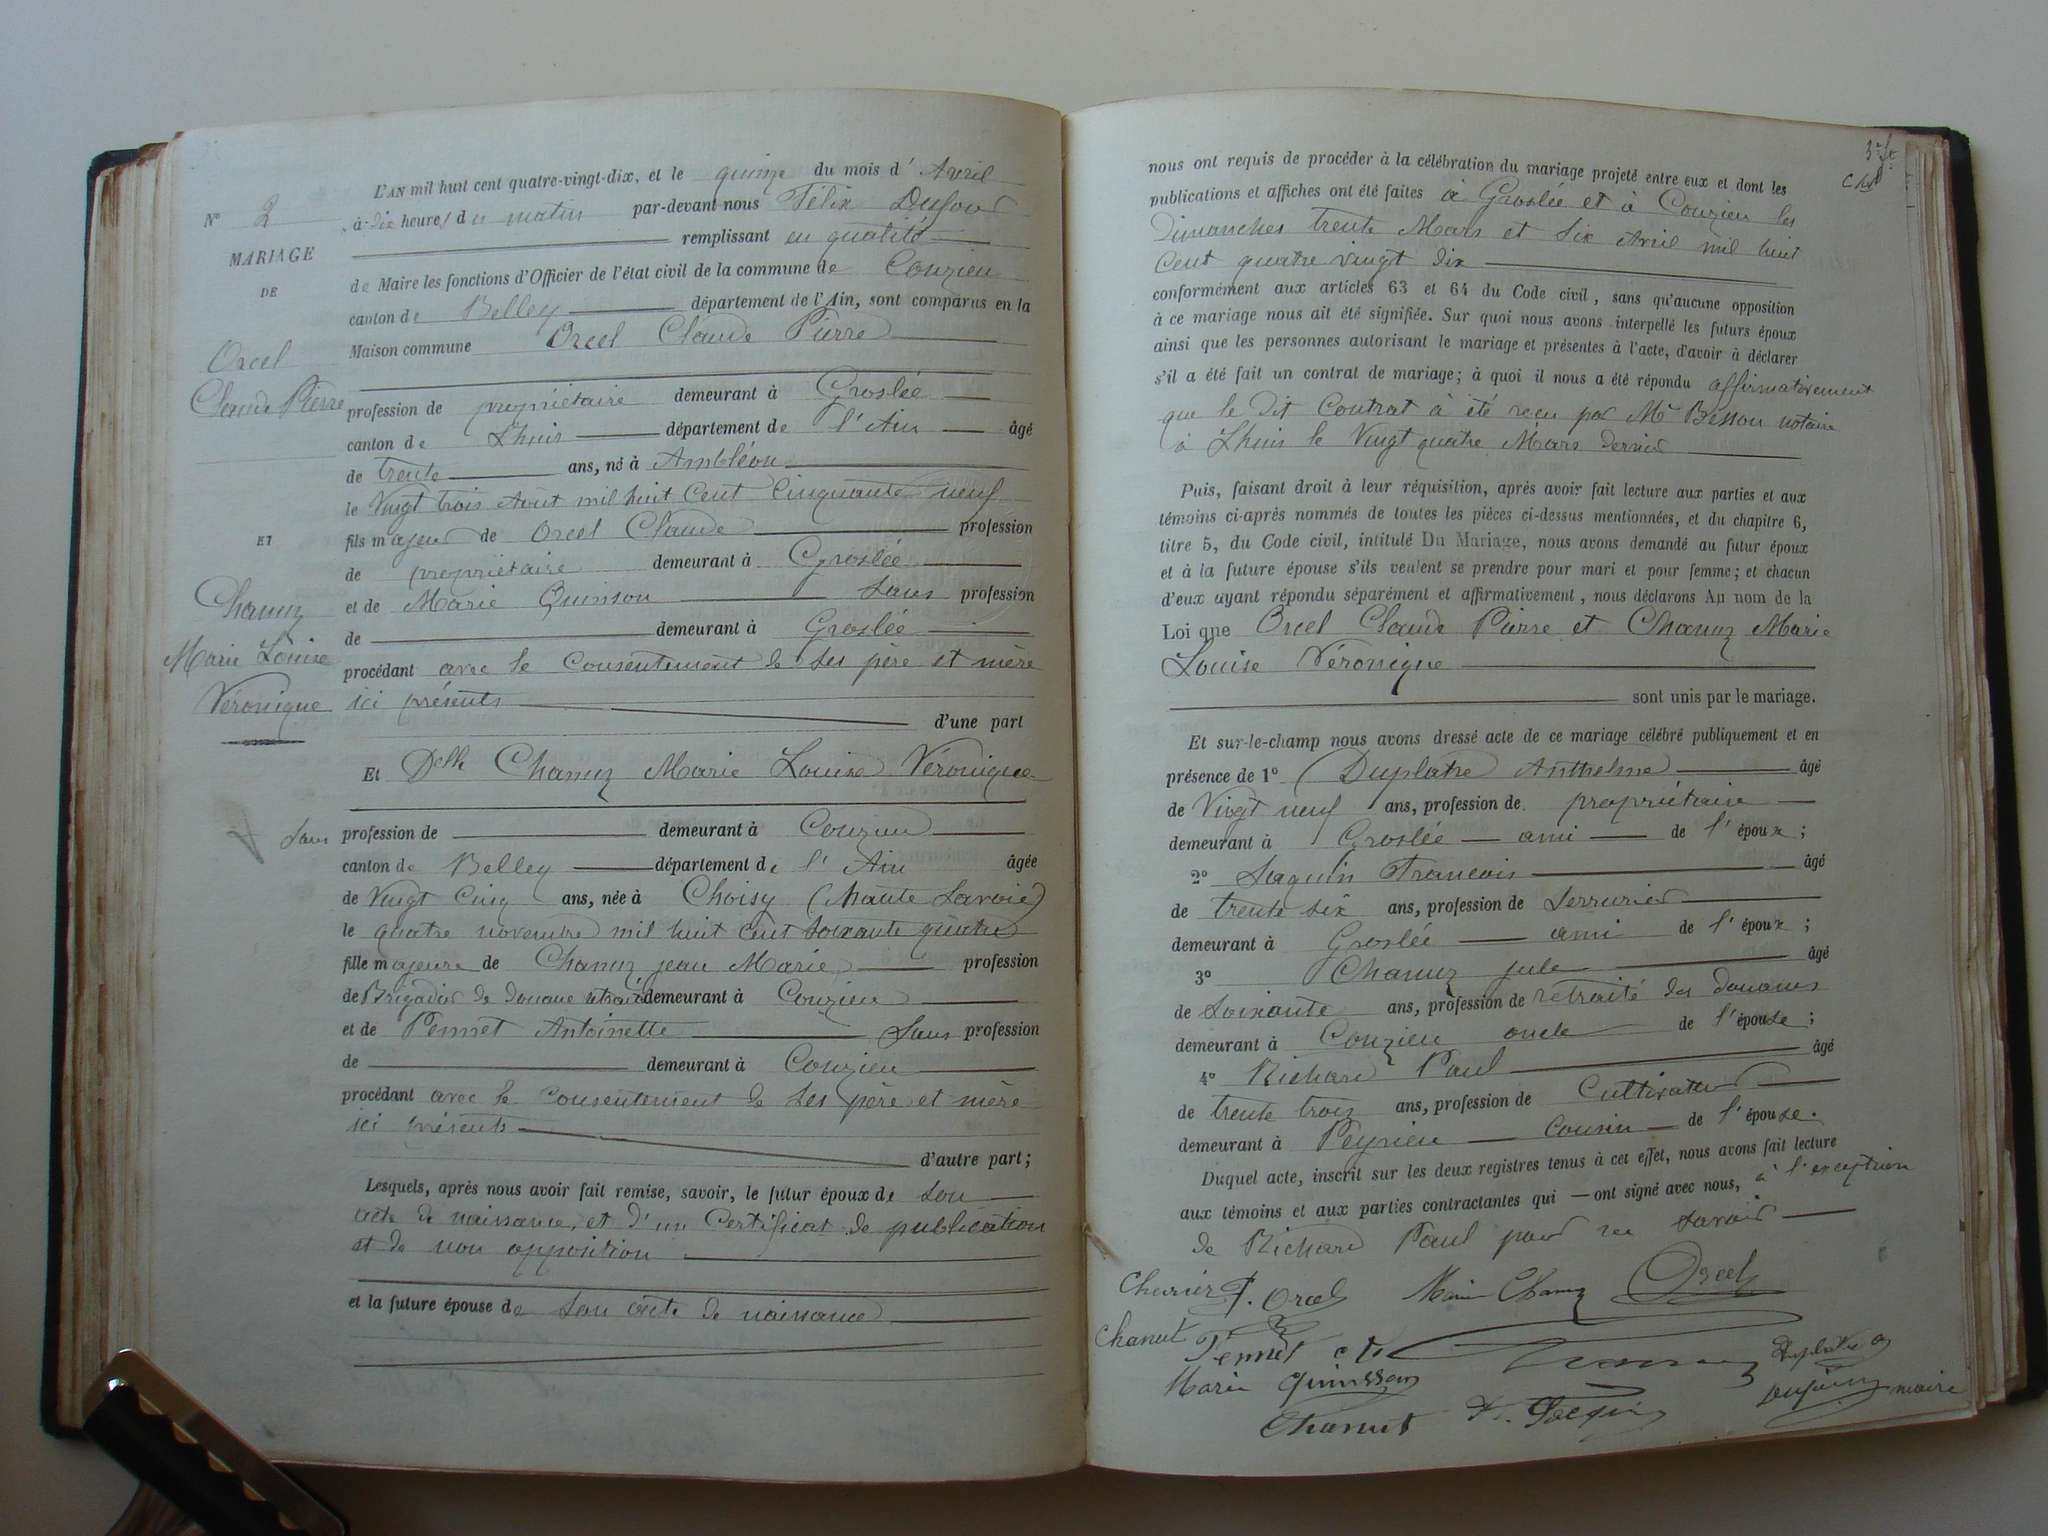 L'AN mil huit cent quatre-vingt-dix, et le quinze du mois d'Avril
N° 2
à dix heures du matin par-devant nous Félix Dufour
remplissant en qualité
MARIAGE
DE
de Maire les fonctions d'Officier de l'état civil de la commune de Conzieu
canton de Belley département de l'Ain, sont comparus en la
Maison commune Orcel Claude Pierre
Orcel
Claude Pierre
profession de propriétaire demeurant à Groslée
canton de Lhuis département de l'Ain âgé
de trente ans, né à Ambléon
le Vingt trois Août mil huit Cent Cinquante neuf
fils majeur de Orcel Claude profession
ET
de propriétaire demeurant à Groslée
et de Marie Quinson Sans profession
de demeurant à Groslée
Chanuz
Marie Louise
Véronique
procédant avec le Consentement de Ses père et mère
ici présents
d'une part
Et Delle Chanuz Marie Louise Véronique
Sans profession de demeurant à Conzieu
canton de Belley département de l'Ain âgée
de Vingt Cinq ans, née à Choisy (Haute Savoie)
le quatre novembre mil huit cent soixante quatre
fille majeure de Chanuz jean Marie profession
de Brigadier de douane retraité demeurant à Conzieu
et de Pennet Antoinette Sans profession
de demeurant à Conzieu
procédant avec le Consentement de Ses père et mère
ici présents
d'autre part;
Lesquels, après nous avoir fait remise, savoir, le futur époux de Son
acte de naissance, et d'un Certificat de publication
et de non opposition
et la future épouse de Son acte de naissance
nous ont requis de procéder à la célébration du mariage projeté entre eux et dont les
publications et affiches ont été faites à Groslée et à Conzieu les
Dimanches trente Mars et Six Avril mil huit
Cent quatre vingt dix
conformément aux articles 63 et 64 du Code civil, sans qu'aucune opposition
à ce mariage nous ait été signifiée. Sur quoi nous avons interpellé les futurs époux
ainsi que les personnes autorisant le mariage et présentes à l'acte, d'avoir à déclarer
s'il a été fait un contrat de mariage; à quoi il nous a été répondu affirmativement
que le dit Contrat à été reçu par Mr Besson notaire
à Lhuis le Vingt quatre Mars dernier
Puis, faisant droit à leur réquisition, après avoir fait lecture aux parties et aux
témoins ci-après nommés de toutes les pièces ci-dessus mentionnées, et du chapitre 6,
titre 5, du Code civil, intitulé Du Mariage, nous avons demandé au futur époux
et à la future épouse s'ils veulent se prendre pour mari et pour femme; et chacun
d'eux ayant répondu séparément et affirmativement, nous déclarons Au nom de la
Loi que Orcel Claude Pierre et Chanuz Marie
Louise Véronique
sont unis par le mariage.
Et sur-le-champ nous avons dressé acte de ce mariage célébré publiquement et en
présence de 1° Duplatre Anthelme âgé
de Vingt neuf ans, profession de propriétaire
demeurant à Groslée ami de l'époux;
2° Jaquin François âgé
de trente six ans, profession de Serrurier
demeurant à Groslée ami de l'époux;
3° Chanuz jule âgé
de Soixante ans, profession de retraité des douanes
demeurant à Conzieu oncle de l'épouse;
4° Richard Paul âgé
de trente trois ans, profession de Cultivateur
demeurant à Peyrieu Cousin de l'épouse.
Duquel acte, inscrit sur les deux registres tenus à cet effet, nous avons fait lecture
aux témoins et aux parties contractantes qui — ont signé avec nous, à l'exception
de Richard Paul pour ne savoir
Orcel Marie Chanuz Orcel
Chanut Pennet
Marie Quinsson Duplatre
Chanut Dufour maire